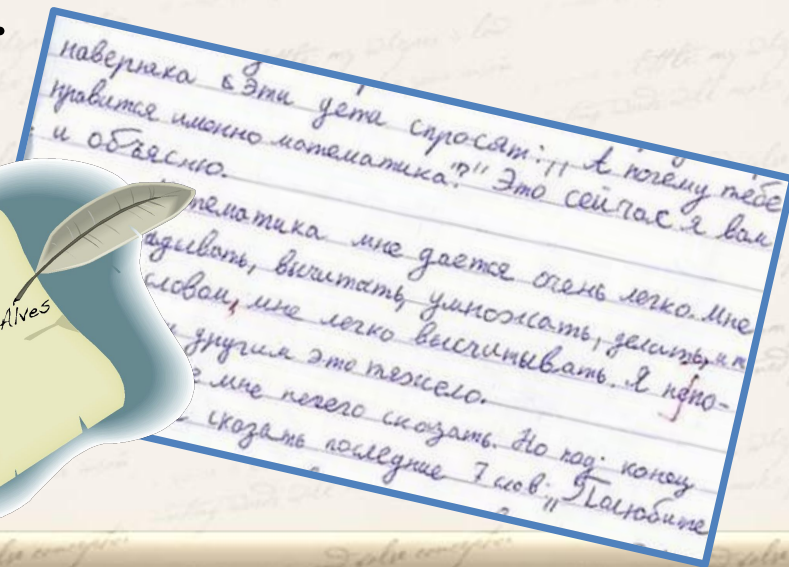 наверняка все эти дети спросят: „А почему тебе
нравится именно математика?" Это сейчас я вам
и объясню.
тематика мне дается очень легко. Мне
адывать, вычитать, умножать, делить,
словом, мне легко высчитывать. Я непо-
другим это тяжело.
мне нечего сказать. Но под конец
сказать последние 7 слов: „Полюбите
Alves